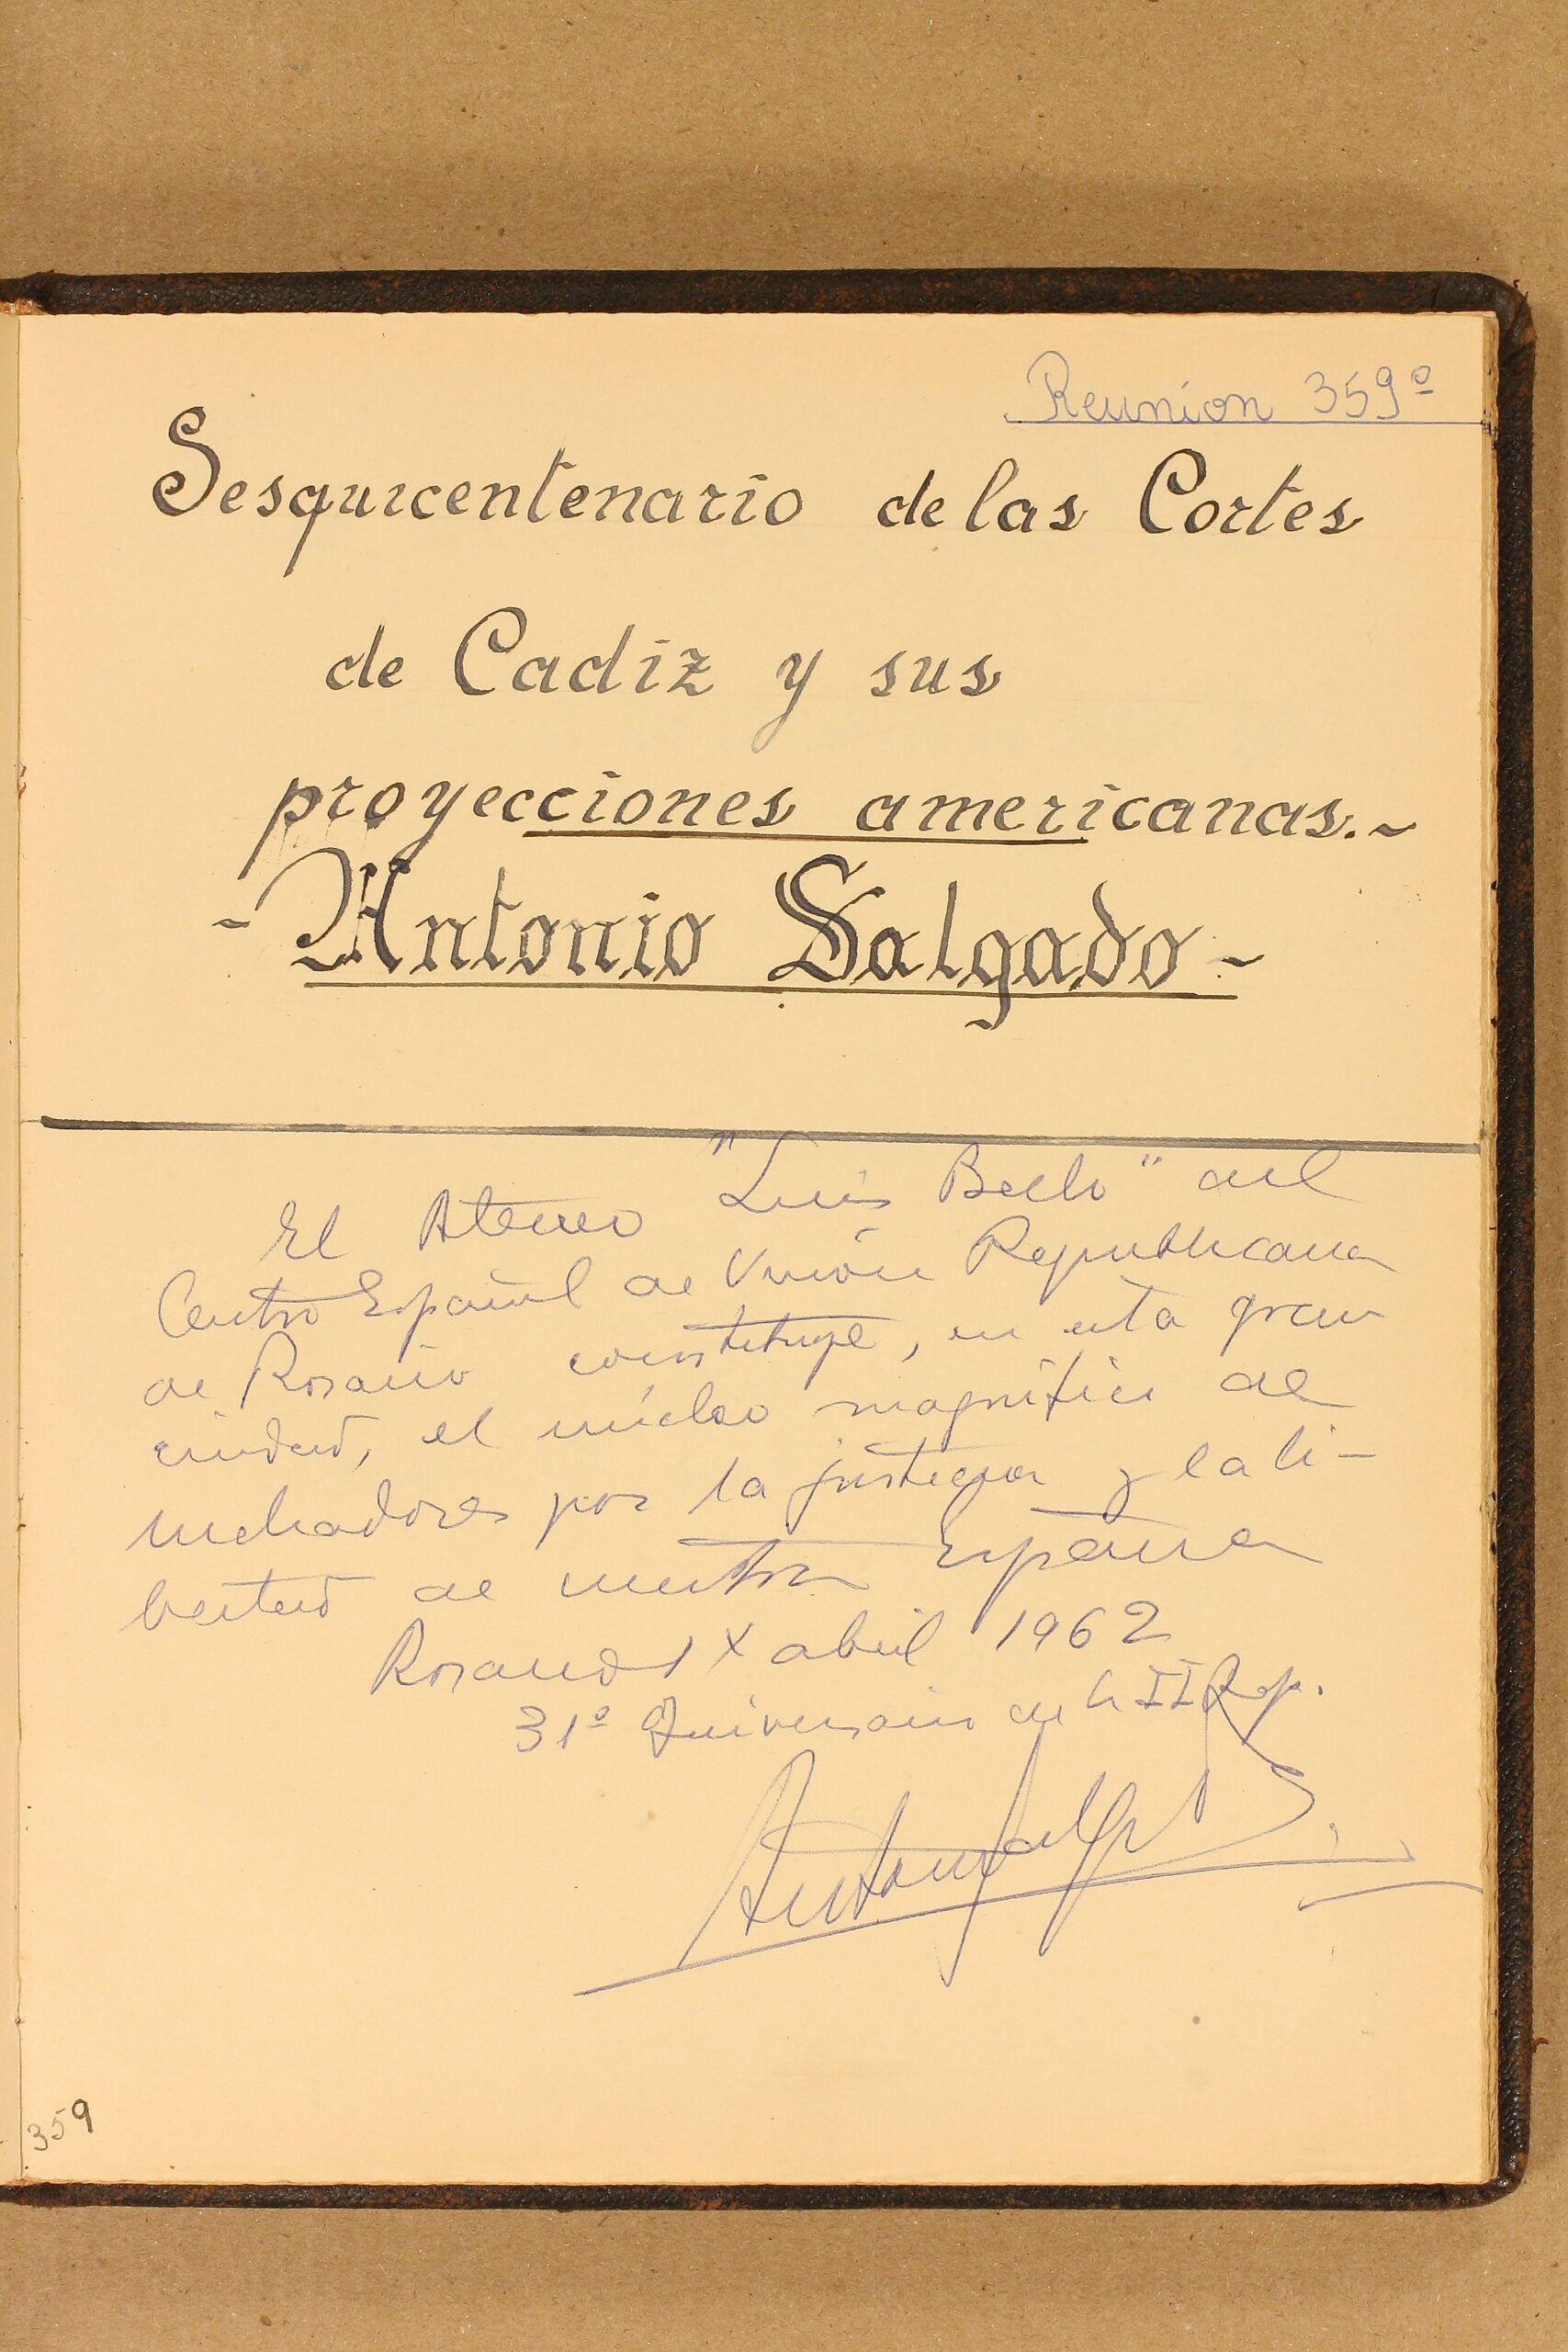 Reunion 359º
Sesquicentenario de las Cortes
de Cadiz y sus
proyecciones americanas.~
- Antonio Salgado -
El Ateneo "Luis Bello" del
Centro Español de Unión Republicana
de Rosario constituye, en esta gran
ciudad, el núcleo magnífico de
luchadores por la justicia y la li-
bertad de nuestra España
Rosario abril 1962
31º Aniversario de la II Rep.
359